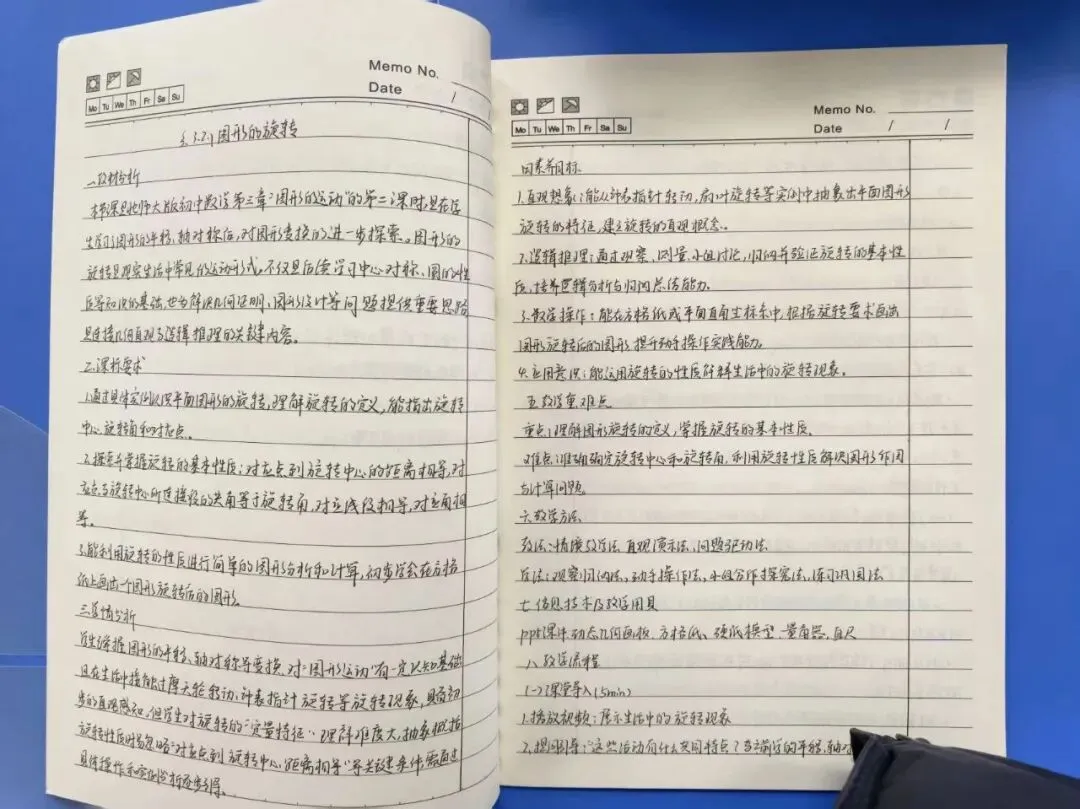 Memo No.
Date /
Mo Tu We Th Fr Sa Su
§3.2.1图形的旋转
一.教材分析
本节课是北师大版初中数学第三章"图形的运动"的第二课时,是在学
生学习了图形的平移、轴对称后,对图形变换的进一步探索。图形的
旋转是现实生活中常见的运动形式,不仅是后续学习中心对称、圆的性
质等知识的基础,也为解决几何证明、图形设计等问题提供重要思路
是连接几何直观与逻辑推理的关键内容。
二.课标要求
1.通过具体实例认识平面图形的旋转,理解旋转的定义,能指出旋转
中心、旋转角和对应点。
2.探索并掌握旋转的基本性质:对应点到旋转中心的距离相等,对
应点与旋转中心所连接段的夹角等于旋转角,对应线段相等,对应角相
等。
3.能利用旋转的性质进行简单的图形分析和计算,初步学会在方格
纸上画出一个图形旋转后的图形。
三.学情分析
学生已掌握图形的平移、轴对称等变换,对"图形运动"有一定认知基础
且在生活中接触过摩天轮转动、钟表指针旋转等旋转现象,具备初
步的直观感知,但学生对旋转的"定量特征"理解难度大,抽象概括
旋转性质时易忽略"对应点到旋转中心距离相等"等关键条件需通过
具体操作和实例分析逐步引导。
Memo No.
Date / /
Mo Tu We Th Fr Sa Su
四素养目标
1.直观想象:能从钟表指针转动,扇叶旋转等实例中抽象出平面图形
旋转的特征,建立旋转的直观概念。
2.逻辑推理:通过观察、测量、小组讨论,归纳并验证旋转的基本性
质,培养逻辑分析与归纳总结能力。
3.数学操作:能在方格纸或平面直角坐标系中,根据旋转要求画出
图形旋转后的图形,提升动手操作实践能力。
4.应用意识:能运用旋转的性质解释生活中的旋转现象。
五.教学重难点
重点:理解图形旋转的定义,掌握旋转的基本性质。
难点:准确确定旋转中心和旋转角,利用旋转性质解决图形作图
与计算问题。
六.教学方法
教法:情境教学法、直观演示法、问题驱动法
学法:观察归纳法、动手操作法、小组合作探究法、练习巩固法
七.信息技术及教学用具
ppt课件、动态几何画板、方格纸、硬纸模型、量角器、直尺
八.教学流程
(一)课堂导入(5min)
1.播放视频:展示生活中的旋转现象
2.提问引导:"这些活动有什么共同特点?与之前学的平移、轴对